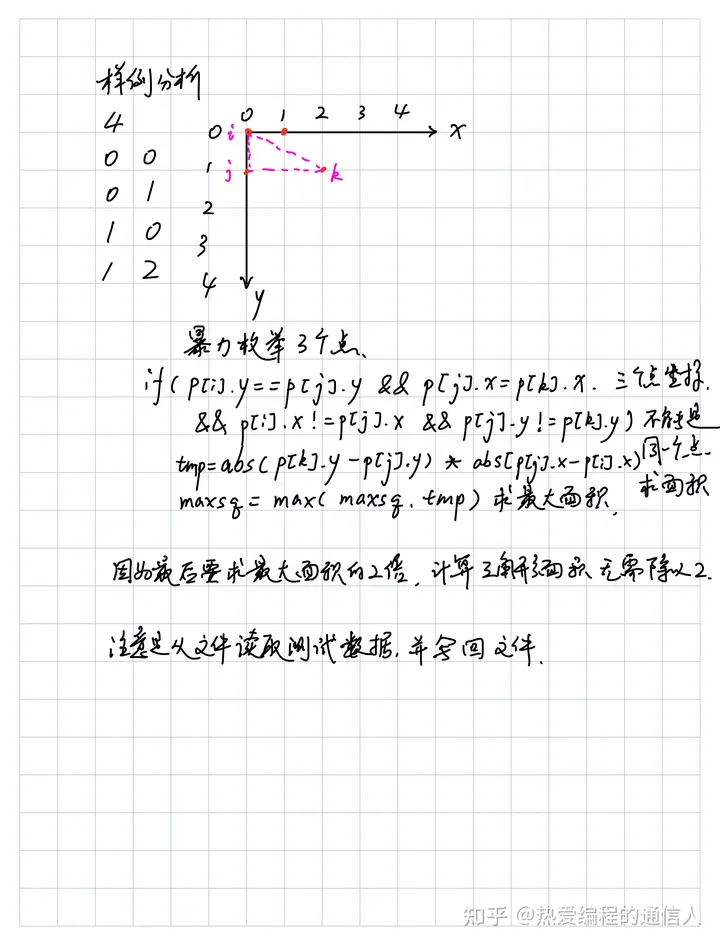 样例分析
4
0 0
0 1
1 0
1 2
0 1 2 3 4
0 i x
1 j k
2
3
4
y
暴力枚举3个点、
if( p[i].y==p[j].y && p[j].x=p[k].x. 三个点坐标.
&& p[i].x!=p[j].x && p[j].y!=p[k].y) 不能是
tmp=abs(p[k].y-p[j].y) * abs[p[j].x-p[i].x) 同一个点.
maxsq = max( maxsq, tmp) 求最大面积, 求面积
因为最后要求最大面积的2倍, 计算三角形面积无需除以2.
注意是从文件读取测试数据, 并写回文件.
知乎 @热爱编程的通信人